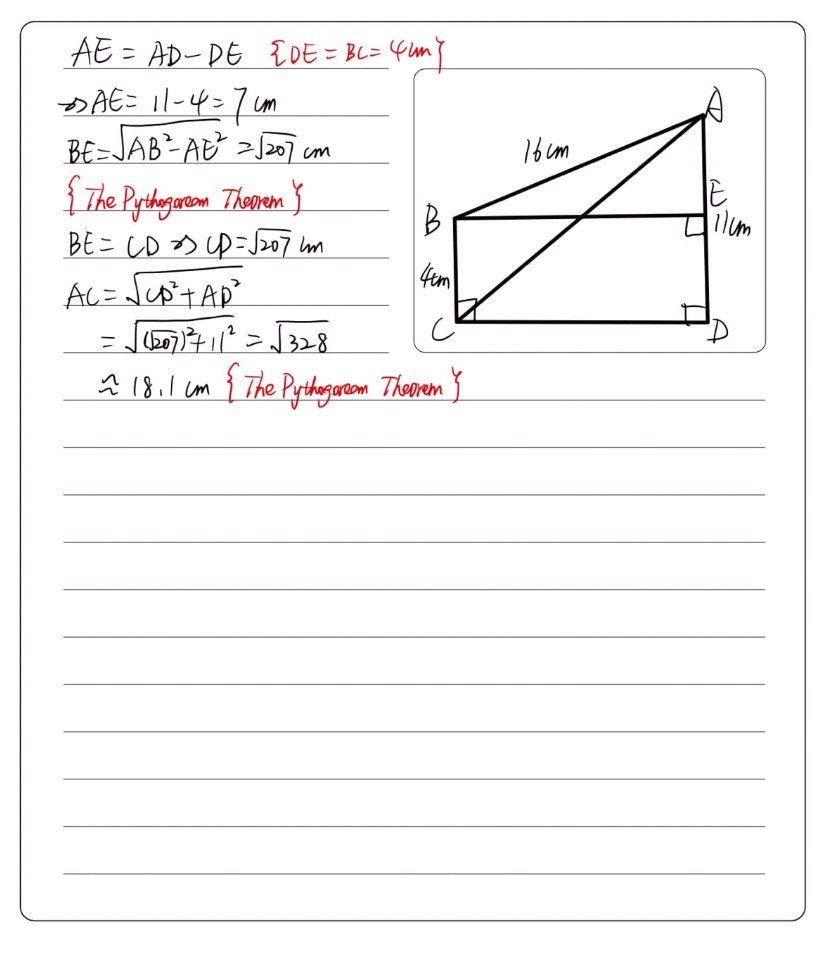 AE = AD - DE {DE = BC = 4cm}
⇒ AE = 11 - 4 = 7 cm
BE = √(AB² - AE²) = √207 cm
{The Pythagorean Theorem}
BE = CD ⇒ CD = √207 cm
AC = √(CD² + AD²)
= √((√207)² + 11²) = √328
≈ 18.1 cm {The Pythagorean Theorem}
A
16cm
E
B
11cm
4cm
C
D